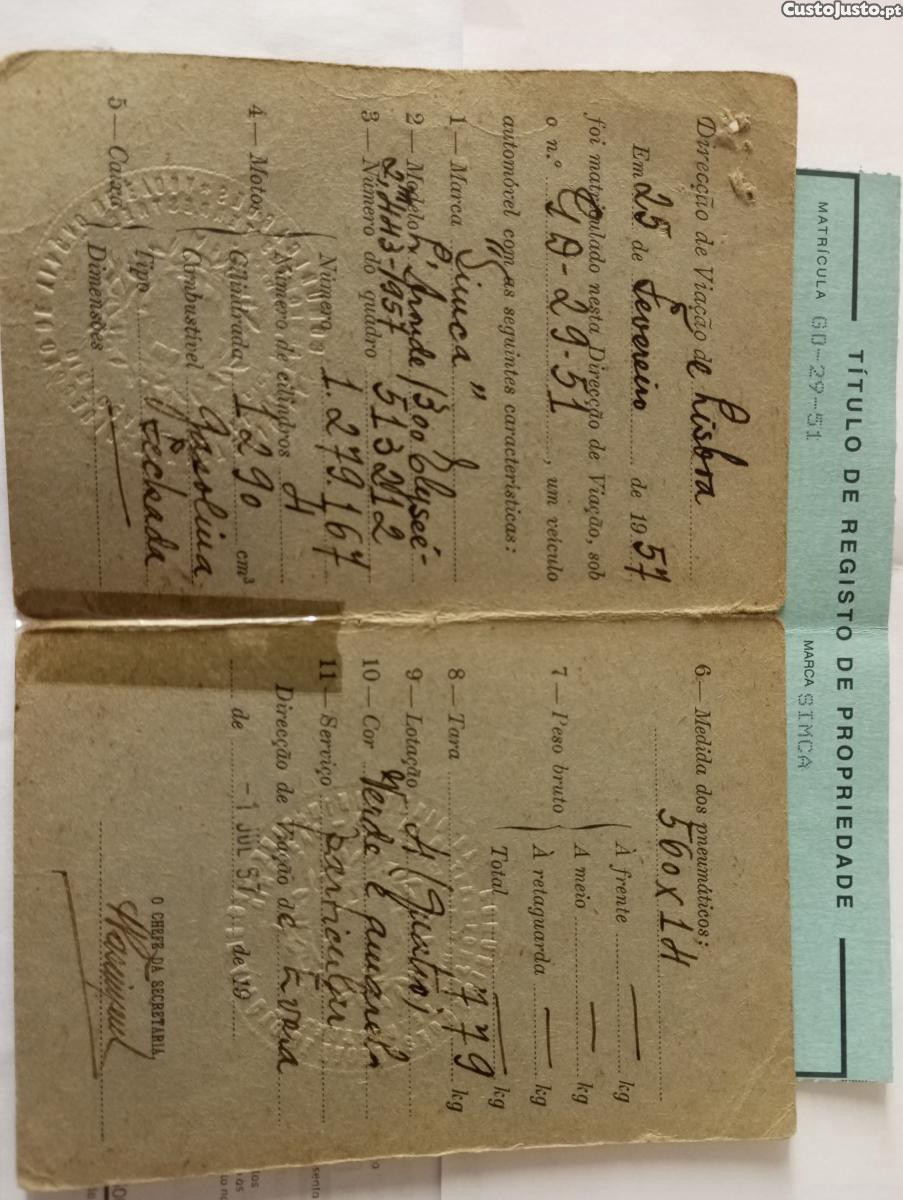 CustoJusto.pt
TÍTULO DE REGISTO DE PROPRIEDADE
MATRÍCULA GD-29-51
MARCA SIMCA
Direcção de Viação de Lisboa
Em 25 de Fevereiro de 1957
foi matriculado nesta Direcção de Viação, sob
o n.º GD-29-51, um veículo
automóvel com as seguintes características:
1 — Marca "Simca"
2 — Modelo Aronde 1300 Elyseé-
2,443-1957
3 — Número do quadro 513212
4 — Motor
Número 1.279.167
Número de cilindros 4
Cilindrada 1290 cm³
Combustível Gasolina
5 — Caixa
Tipo Fechada
Dimensões —
6 — Medida dos pneumáticos:
560 x 14
7 — Peso bruto
À frente — kg
A meio — kg
À retaguarda — kg
Total — kg
8 — Tara 779 kg
9 — Lotação 4 (quatro)
10 — Cor Verde e amarela
11 — Serviço particular
Direcção de Viação de Évora
de -1 JUL 57 de 19
O CHEFE DA SECRETARIA,